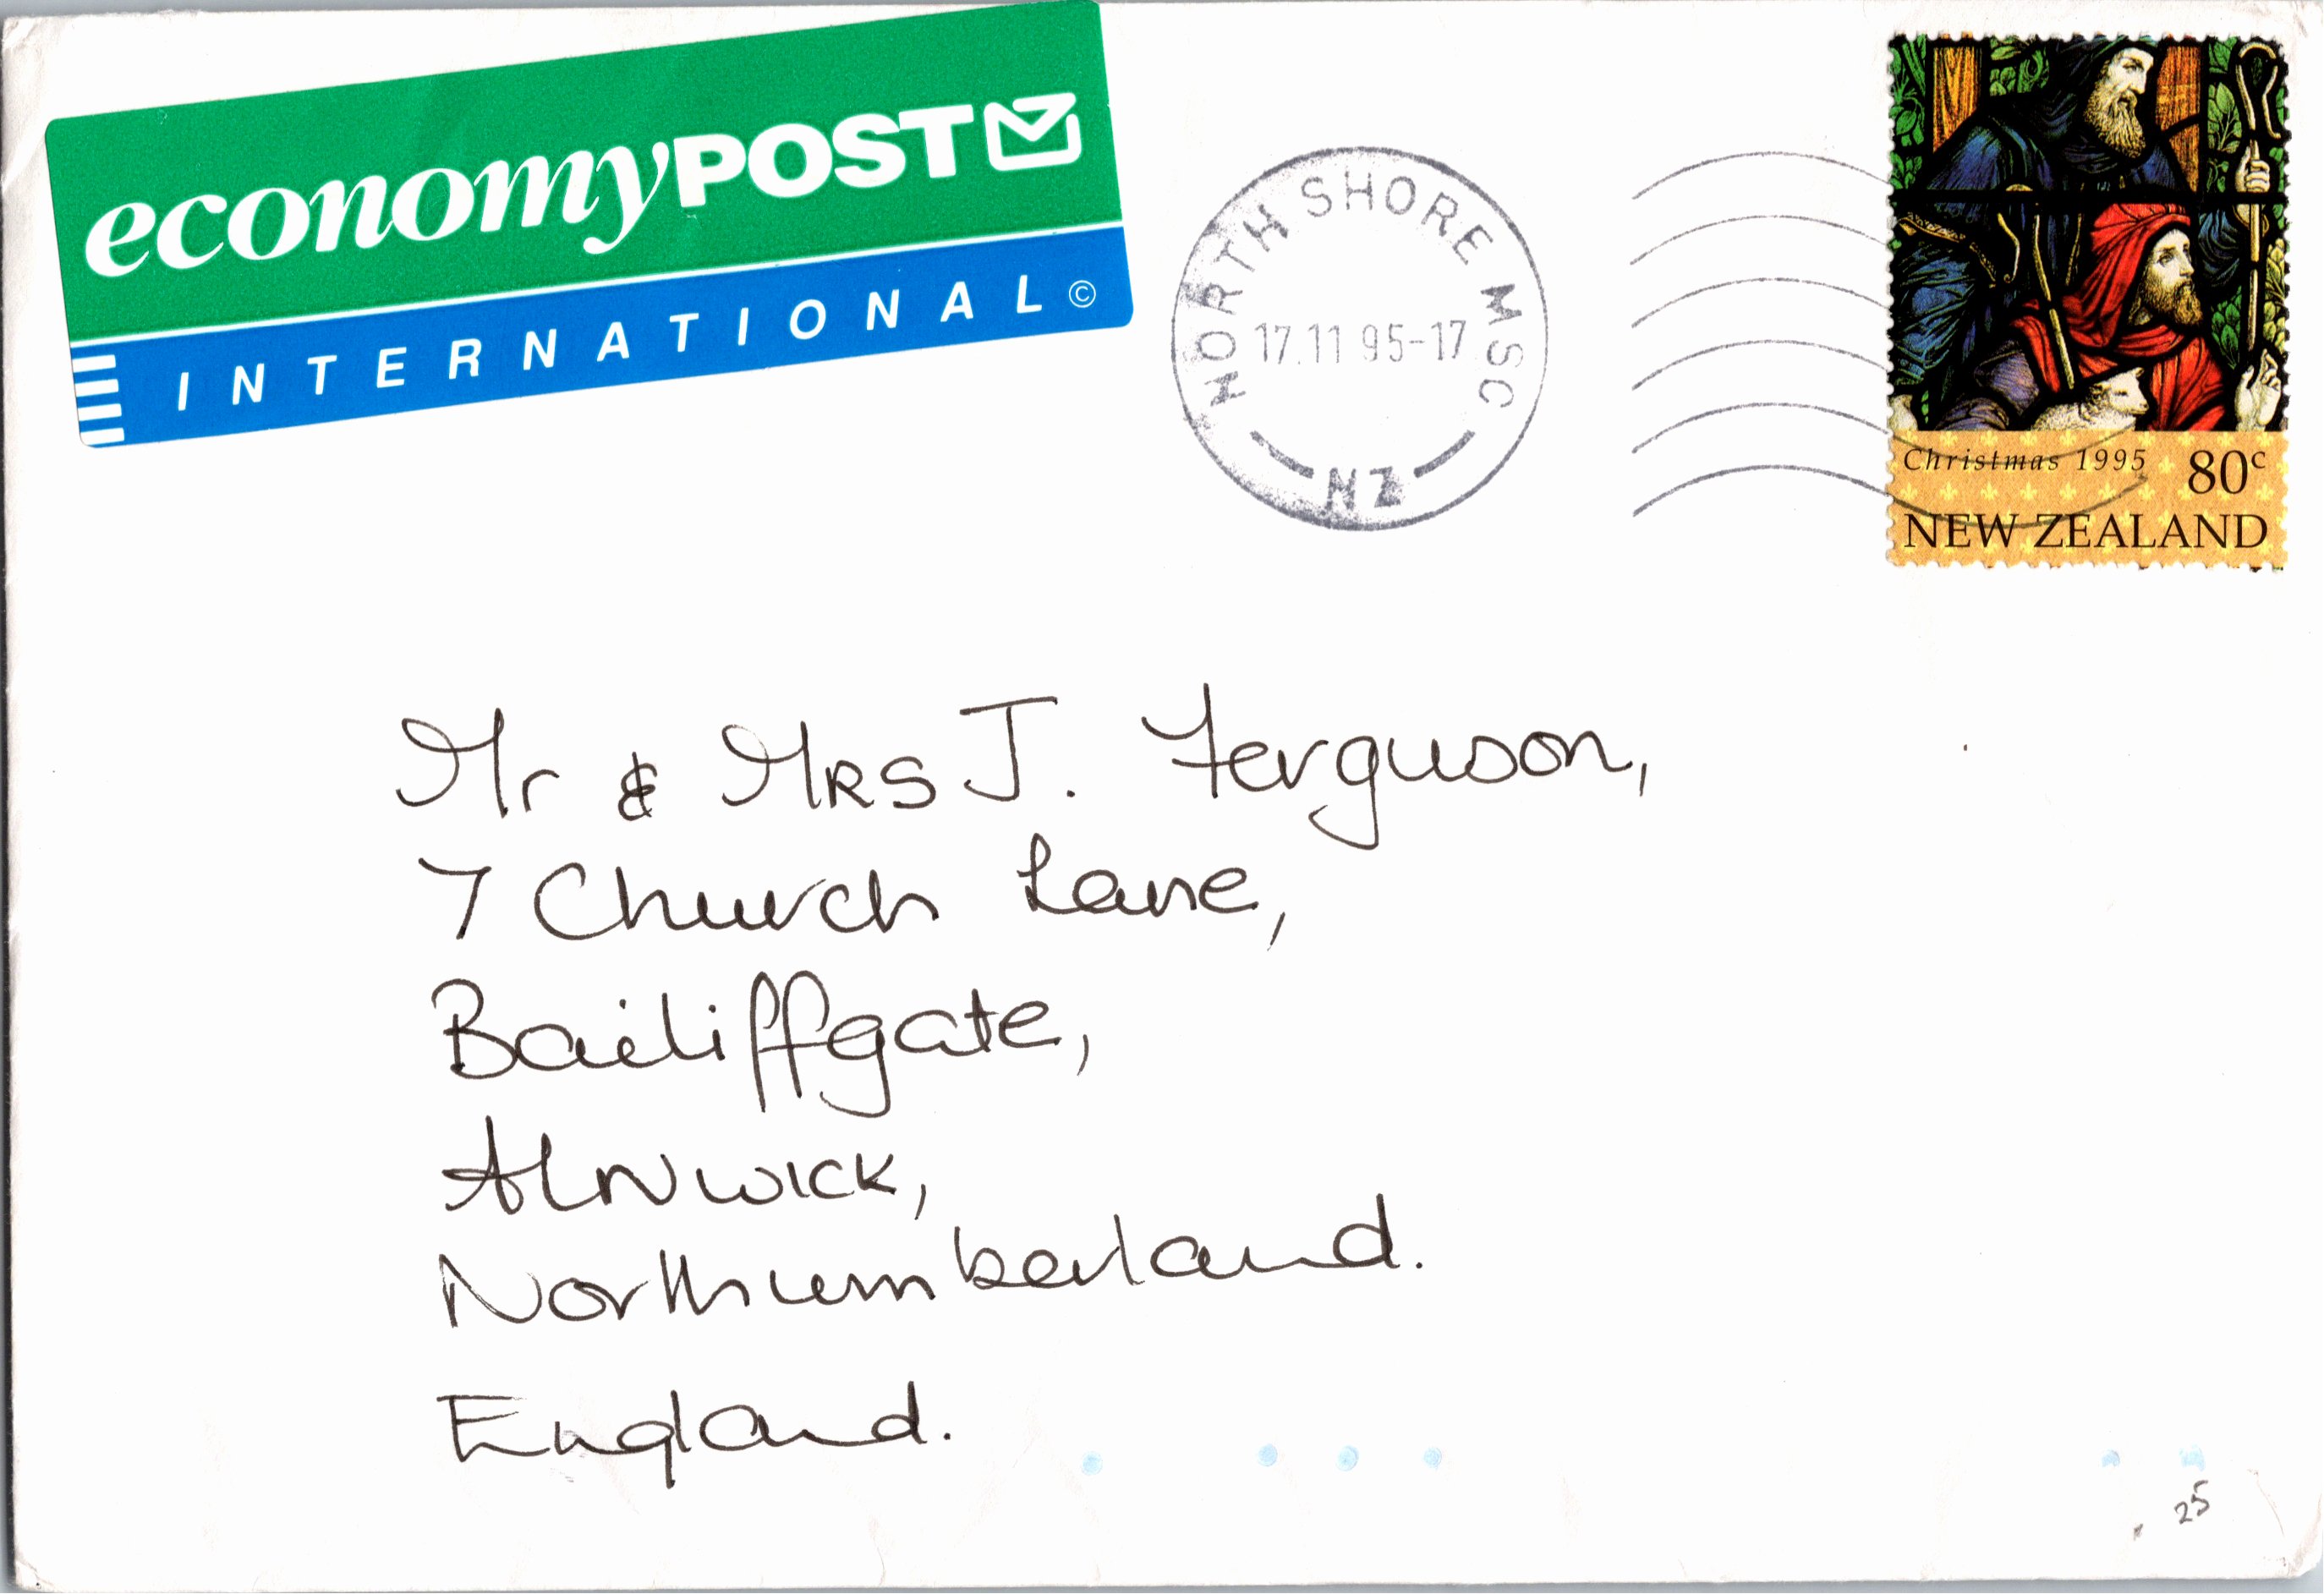 economyPOST
INTERNATIONAL©
NORTH SHORE MSC
17.11 95-17
NZ
Christmas 1995 80c
NEW ZEALAND
Mr & MRS J. Ferguson,
7 Church Lane,
Bailiffgate,
Alnwick,
Northumberland.
England.
25